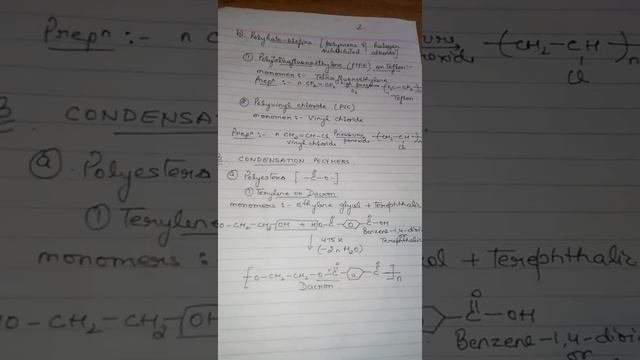 2
b) Polyhalo-olefins [polymers of halogen
substituted alkenes]
① Polytetrafluoroethylene (PTFE) or Teflon:-
monomer :- Tetra fluoroethylene
Prepn :- n CF2 = CF2 high pressure
O2
Teflon
② Polyvinyl chloride (PVC)
monomer :- Vinyl chloride
Prepn :- n CH2=CH-Cl Pressure (-CH2-CH-)n
Vinyl chloride peroxide Cl
CONDENSATION POLYMERS.
ⓐ Polyesters [ -C-O- ]
O
① Terylene or Dacron
monomers :- ethylene glycol + Terephthalic
O-CH2-CH2-OH + HO-C C-OH
O O
Benzene-1,4-dioi
or
Terephthalic
415 K
(-2n H2O)
[O-CH2-CH2-O-C C]n
O O
Dacron
Prepn :- n C
(-CH2-CH-)n
Cl
CONDENSA
ⓐ Polyesters
① Terylene
monomers :
O-CH2-CH2-OH
ol + Terephthalic
O
C-OH
Benzene-1,4-dioi
or